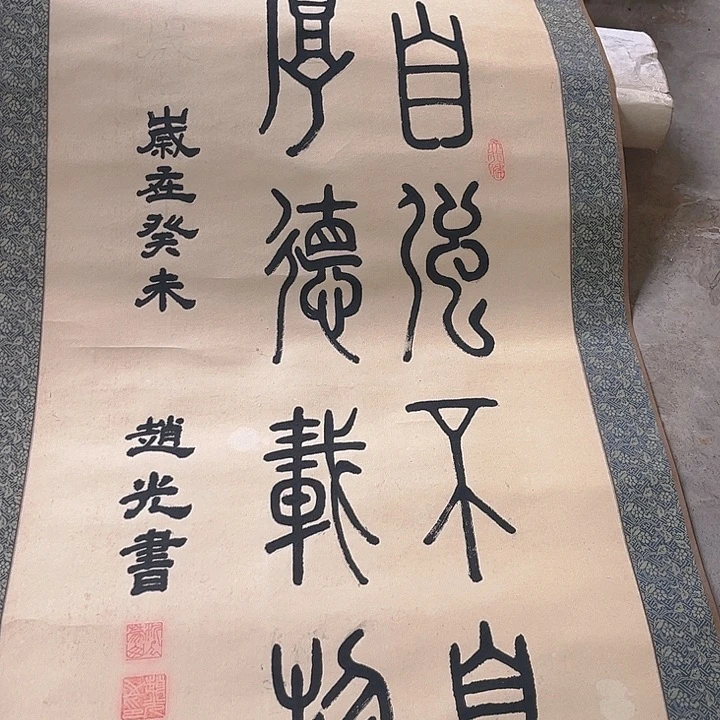 自強不息
厚德載物
歲在癸未 趙光書